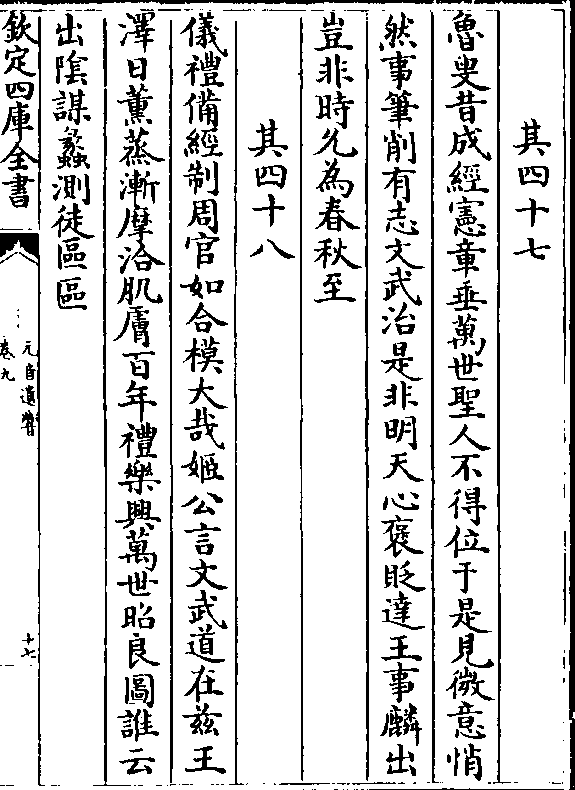 其四十七
魯叟昔成經憲章垂萬世聖人不得位于是見微意悄
然事筆削有志文武治是非明天心褒貶達王事麟出
豈非時允為春秋至
其四十八
儀禮備經制周官如合模大哉姬公言文武道在兹王
澤日薰蒸漸摩洽肌膚百年禮樂興萬世昭良圖誰云
出陰謀蠡測徒區區
欽定四庫全書
卷九
十七